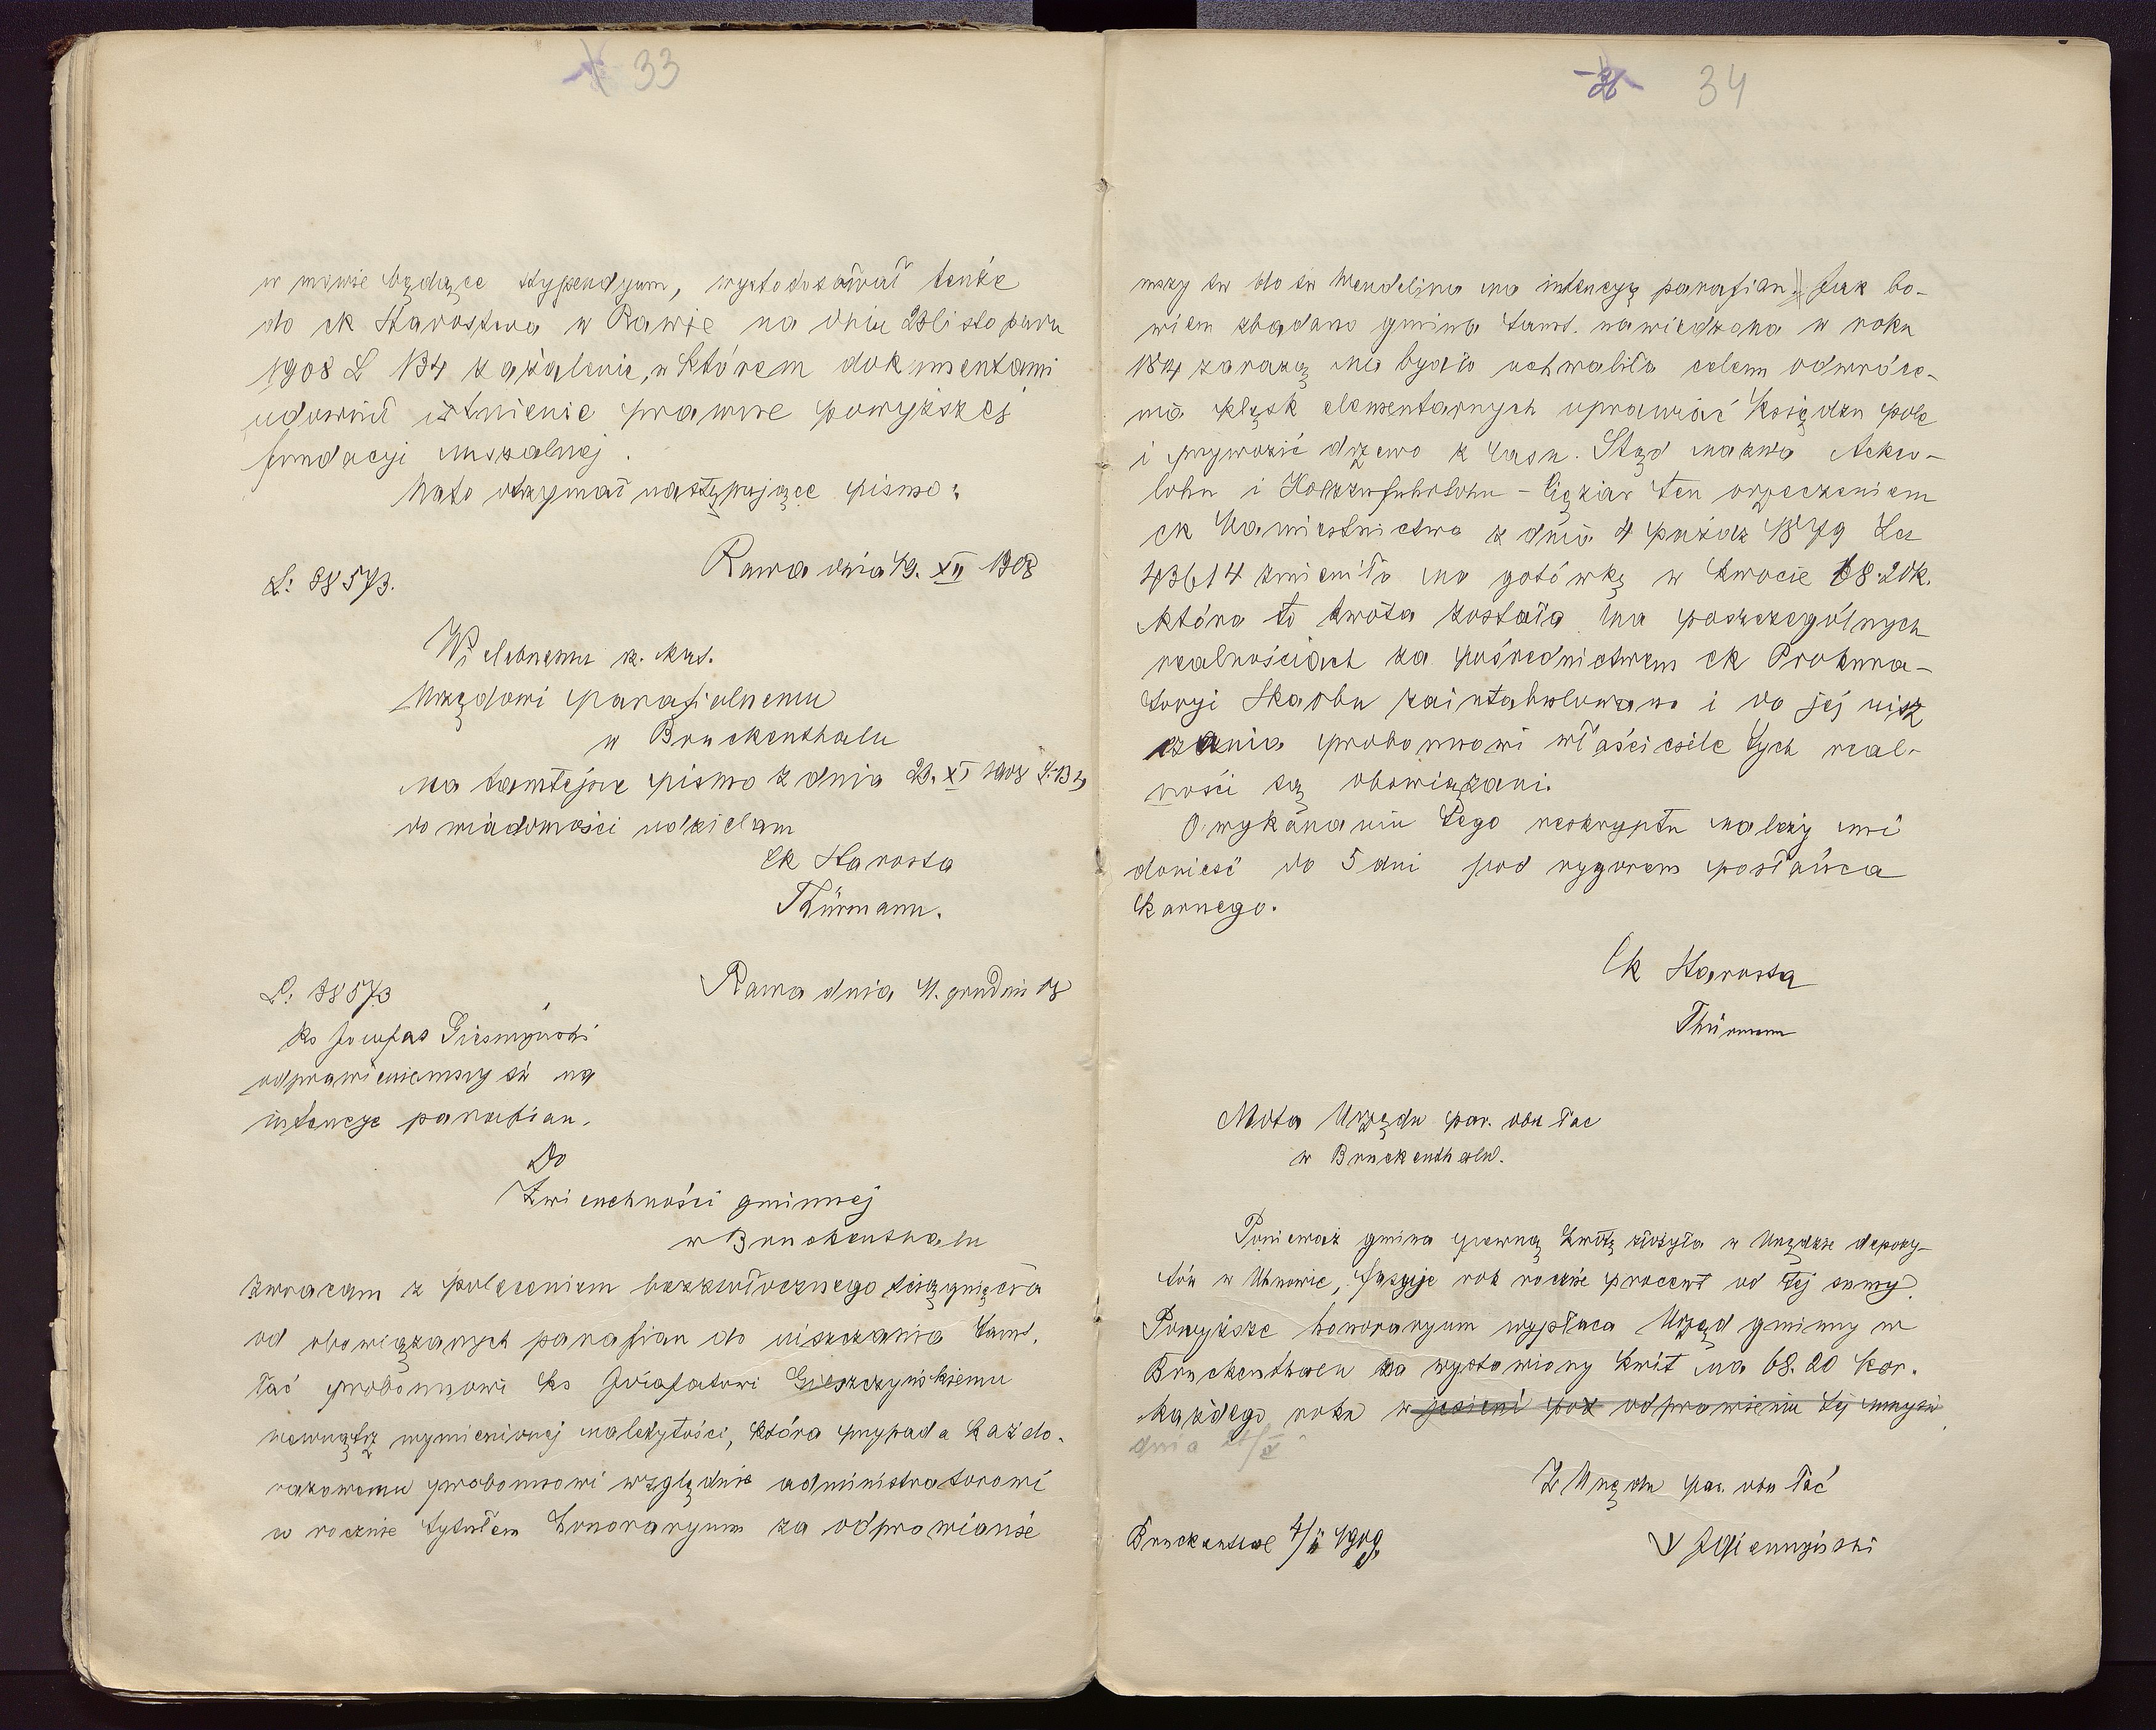 33
w mowie będące stypendyum, wystosował tenże
do ck Starostwa w Rawie na dniu listopada
1908 L 134 zażalenie, w którem dokumentami
udownił istnienie prawne powyższej
fundacyi mszalnej.
Na to otrzymał następujące pismo:
Rawa dnia 19. XII 1908
L: 38573.
Wielebnemu rz. kat.
Urzędowi parafialnemu
w Bruckenthalu
Na tamtejsze pismo z dnia XI 1908 L: 134
do wiadomości udzielam
Ck Starosta
Thürmann.
L: 38573
Rawa dnia grudnia
Ks Jozafat
odprawienie mszy św na
intencye parafian.
Do
Zwierzchności gminnej
w Bruckenthalu
Zwracam z poleceniem bezzwłocznego ściągnięcia
od obowiązanych parafian do uiszczania tamt.
łać proboszczowi ks Jozafatowi Gieszczyńskiemu
wewnątrz wymienionej należytości, która przypada każdo-
razowemu proboszczowi względnie administratorowi
co rocznie tytułem honoraryum za odprawianie
34
mszy św do św Wendelina na intencyę parafian. Jak bo-
wiem zbadano gmina tamt. nawiedzona w roku
zarazą na bydło uchwaliła celem odwróce-
nia klęsk elementarnych uprawiać księdzu pole
i przywozić drzewo z lasu. Stąd nazwa Acker-
lohn i Holzzufuhrlohn – Ciężar ten orzeczeniem
ck Namiestnictwa z dnia 4 paźdz 1879 La
43614 zmieniła na gotówkę w kwocie 68.20k.
która to kwota została na poszczególnych
realnościach za pośrednictwem ck Prokura-
toryi Skarbu zaintabulowana i do jej uisz
czania proboszczowi właściciele tych real-
ności są obowiązani.
O wykonaniu tego reskryptu należy mi
donieść do 5 dni pod rygorem posłańca
karnego.
Ck Starosta
Thürmann
Nota Urzędu par. obrz łac
w Bruckenthalu.
Ponieważ gmina pewną kwotę złożyła w Urzędzie depozy-
tów w Uhnowie, rok rocznie procent od tej sumy.
Powyższe honoraryum wypłaca Urząd gminny w
Bruckenthalu za wystawiony kwit na 68.20 kor.
każdego roku w jesieni po odprawieniu tej mszy św
dnia
Z Urzędu par. obrz łać
Bruckenthal 4/ii 1909.